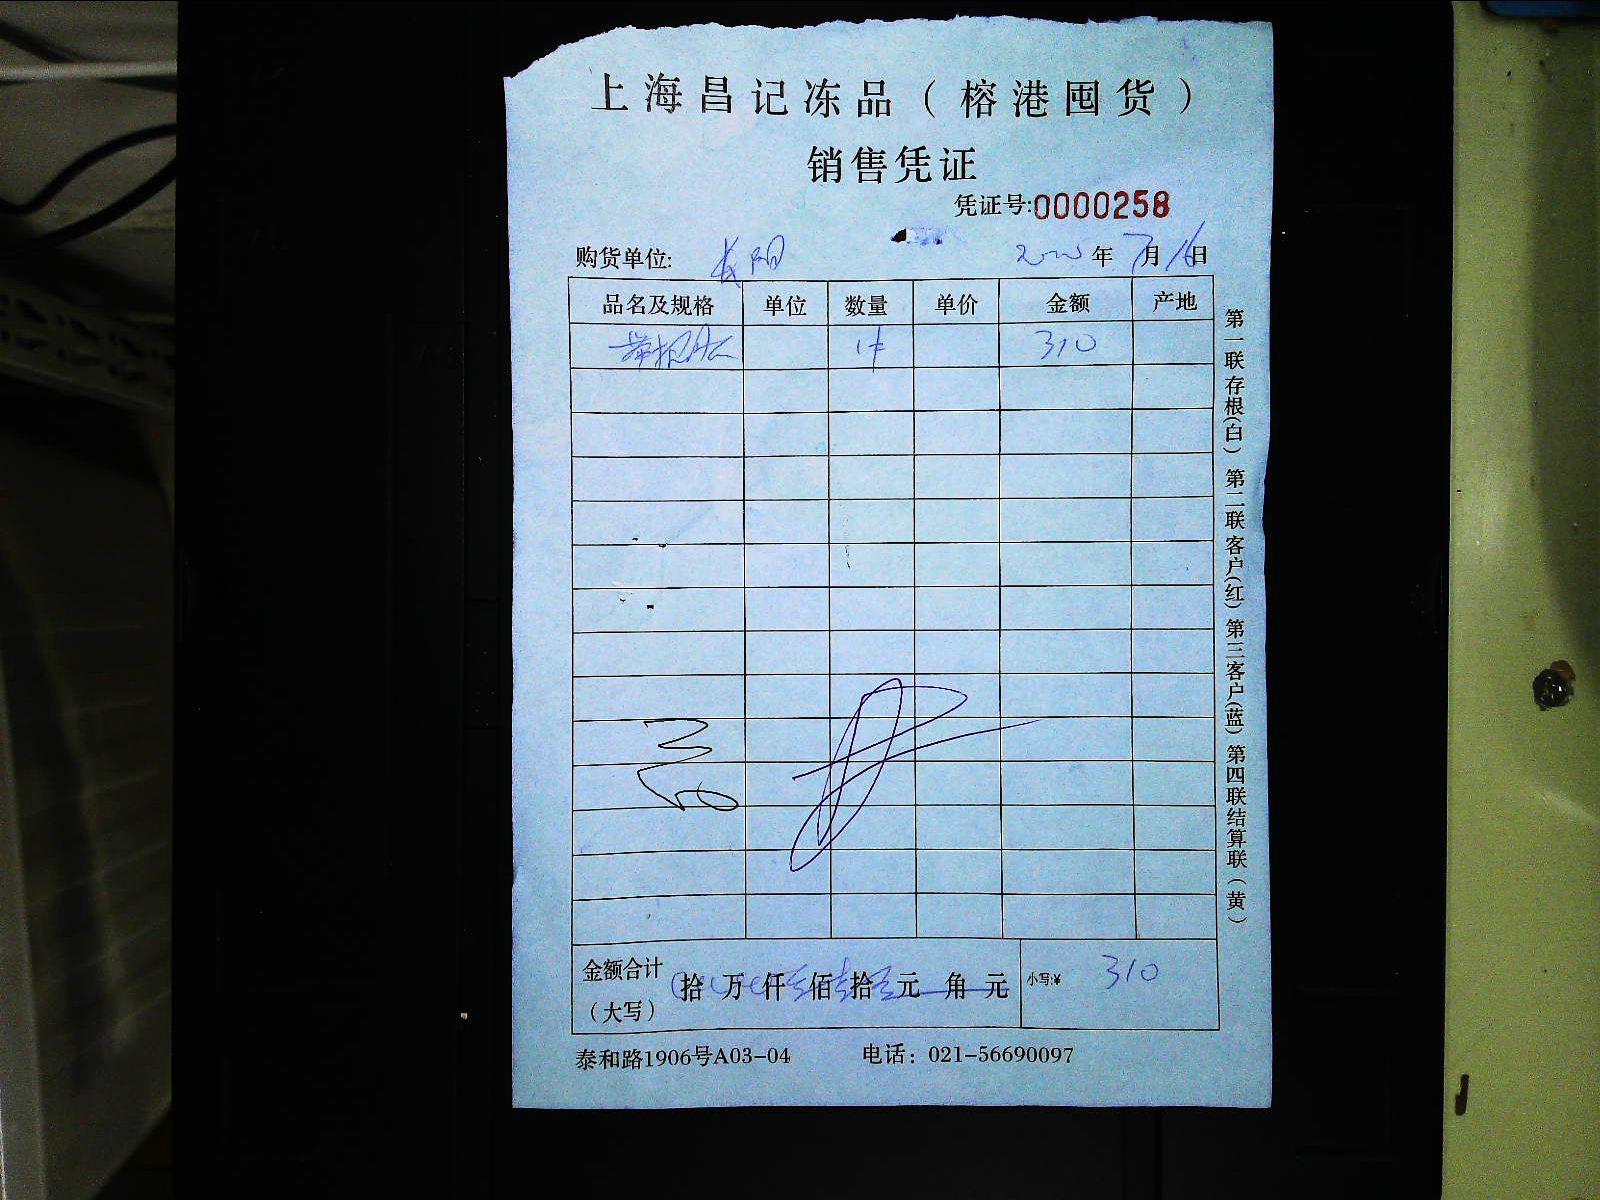 上海昌记冻品（榕港囤货）
销售凭证
凭证号:0000258
购货单位: 长阳 年7月16日
品名及规格 单位 数量 单价 金额 产地
1件 310
金额合计（大写） 拾 万 仟 叁 佰 壹 拾 零 元 角 元 小写:¥ 310
泰和路1906号A03-04 电话：021-56690097
第一联存根(白) 第二联客户(红) 第三客户(蓝) 第四联结算联(黄)